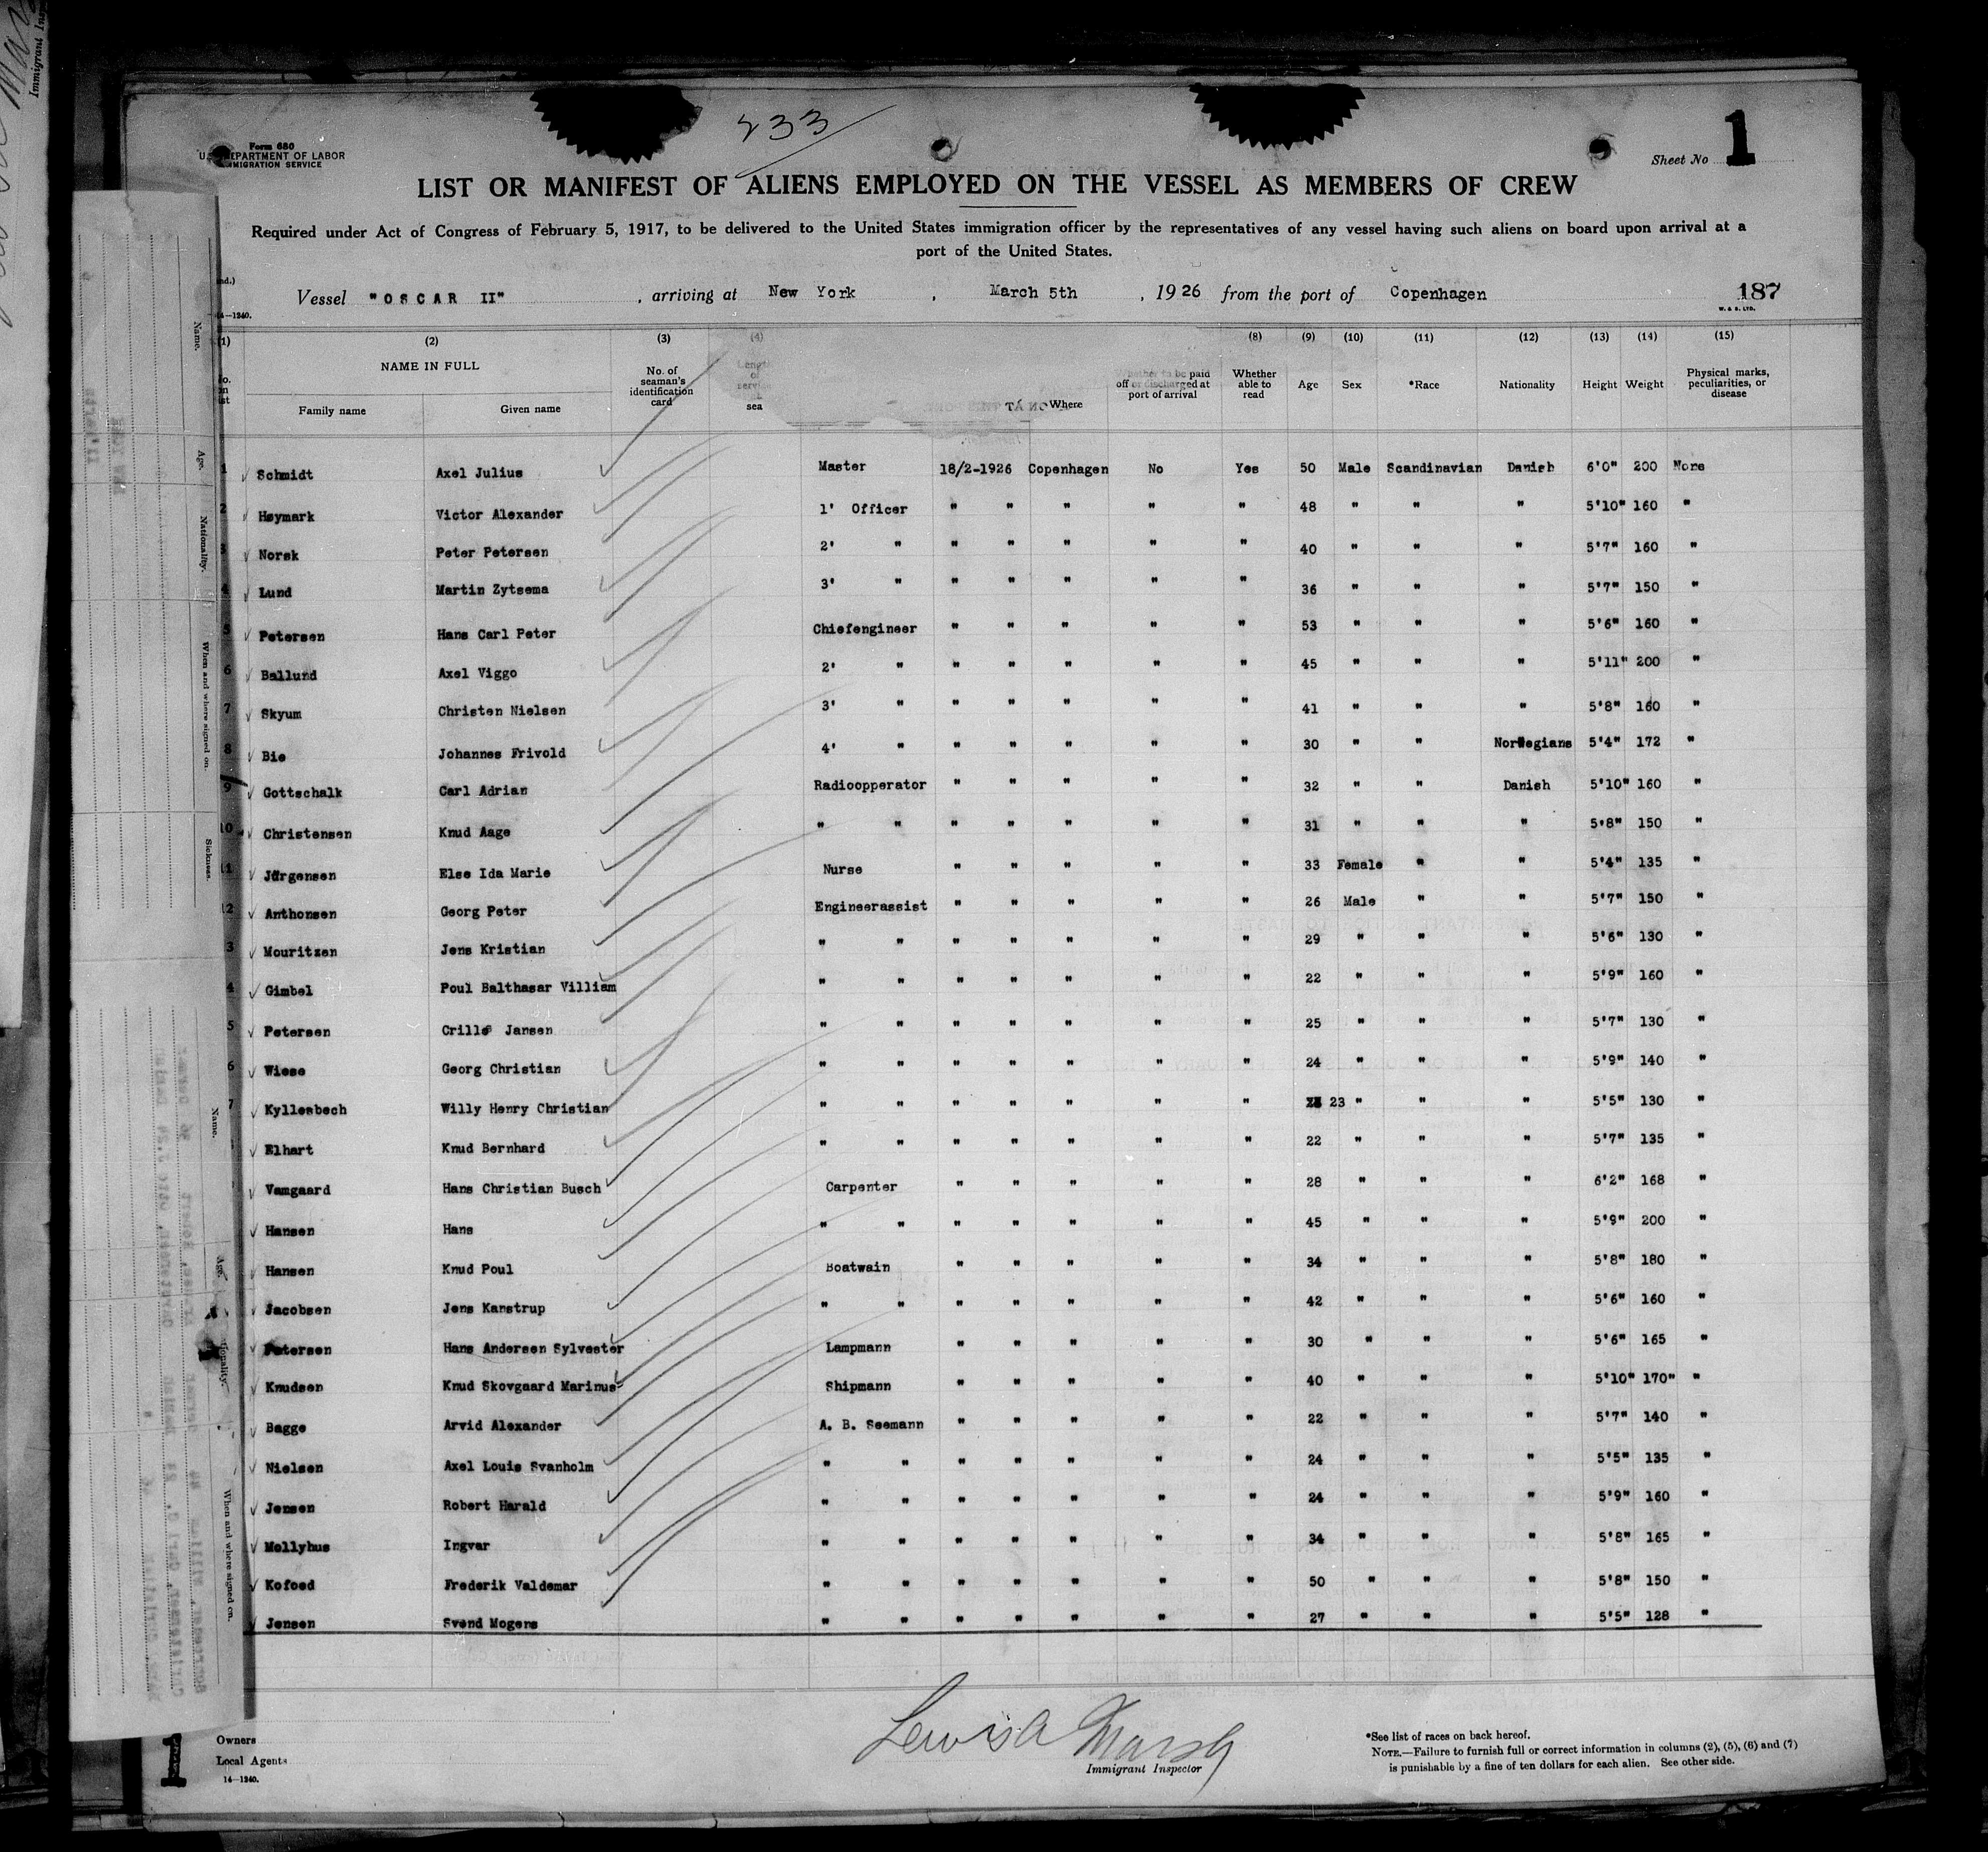 233
Form 680
U. S. DEPARTMENT OF LABOR
IMMIGRATION SERVICE
Sheet No 1
LIST OR MANIFEST OF ALIENS EMPLOYED ON THE VESSEL AS MEMBERS OF CREW
Required under Act of Congress of February 5, 1917, to be delivered to the United States immigration officer by the representatives of any vessel having such aliens on board upon arrival at a
port of the United States.
Vessel "OSCAR II" , arriving at New York , March 5th , 1926 from the port of Copenhagen 187
14—1240. W. & S. LTD.
(1) (2) (3) (4) (8) (9) (10) (11) (12) (13) (14) (15)
NAME IN FULL
Family name Given name No. of seaman's identification card sea Where off or discharged at port of arrival Whether able to read Age Sex *Race Nationality Height Weight Physical marks, peculiarities, or disease
1 Schmidt Axel Julius Master 18/2-1926 Copenhagen No Yes 50 Male Scandinavian Danish 6'0" 200 None
2 Høymark Victor Alexander 1' Officer " " " " " 48 " " " 5'10" 160 "
3 Norsk Peter Petersen 2' " " " " " " 40 " " " 5'7" 160 "
4 Lund Martin Zytsema 3' " " " " " " 36 " " " 5'7" 150 "
5 Petersen Hans Carl Peter Chiefengineer " " " " " 53 " " " 5'6" 160 "
6 Ballund Axel Viggo 2' " " " " " " 45 " " " 5'11" 200 "
7 Skyum Christen Nielsen 3' " " " " " " 41 " " " 5'8" 160 "
8 Bie Johannes Frivold 4' " " " " " " 30 " " Norwegians 5'4" 172 "
9 Gottschalk Carl Adrian Radioopperator " " " " " 32 " " Danish 5'10" 160 "
10 Christensen Knud Aage " " " " " " " 31 " " " 5'8" 150 "
11 Jørgensen Else Ida Marie Nurse " " " " " 33 Female " " 5'4" 135 "
12 Anthonsen Georg Peter Engineerassist " " " " " 26 Male " " 5'7" 150 "
3 Mouritzen Jens Kristian " " " " " " " 29 " " " 5'6" 130 "
4 Gimbel Poul Balthasar Villiam " " " " " " " 22 " " " 5'9" 160 "
5 Petersen Crille Jansen " " " " " " " 25 " " " 5'7" 130 "
6 Wiese Georg Christian " " " " " " " 24 " " " 5'9" 140 "
7 Kyllesbech Willy Henry Christian " " " " " " " 23 " " " 5'5" 130 "
Elhart Knud Bernhard " " " " " " " 22 " " " 5'7" 135 "
Vamgaard Hans Christian Busch Carpenter " " " " " 28 " " " 6'2" 168 "
Hansen Hans " " " " " " " 45 " " " 5'9" 200 "
Hansen Knud Poul Boatwain " " " " " 34 " " " 5'8" 180 "
Jacobsen Jens Kanstrup " " " " " " " 42 " " " 5'6" 160 "
Petersen Hans Andersen Sylvester Lampmann " " " " " 30 " " " 5'6" 165 "
Knudsen Knud Skovgaard Marinus Shipmann " " " " " 40 " " " 5'10" 170" "
Bagge Arvid Alexander A. B. Seemann " " " " " 22 " " " 5'7" 140 "
Nielsen Axel Louis Svanholm " " " " " " " 24 " " " 5'5" 135 "
Jensen Robert Harald " " " " " " " 24 " " " 5'9" 160 "
Mollyhus Ingvar " " " " " " " 34 " " " 5'8" 165 "
Kofoed Frederik Valdemar " " " " " " " 50 " " " 5'8" 150 "
Jensen Svend Mogens " " " " " " " 27 " " " 5'5" 128 "
Lewis A Marsh
Immigrant Inspector
Owners
Local Agents
14—1240.
1
*See list of races on back hereof.
NOTE.—Failure to furnish full or correct information in columns (2), (5), (6) and (7)
is punishable by a fine of ten dollars for each alien. See other side.
Name.
Age.
Nationality.
When and where signed on.
Sickness.
Name.
Age.
When and where signed on.